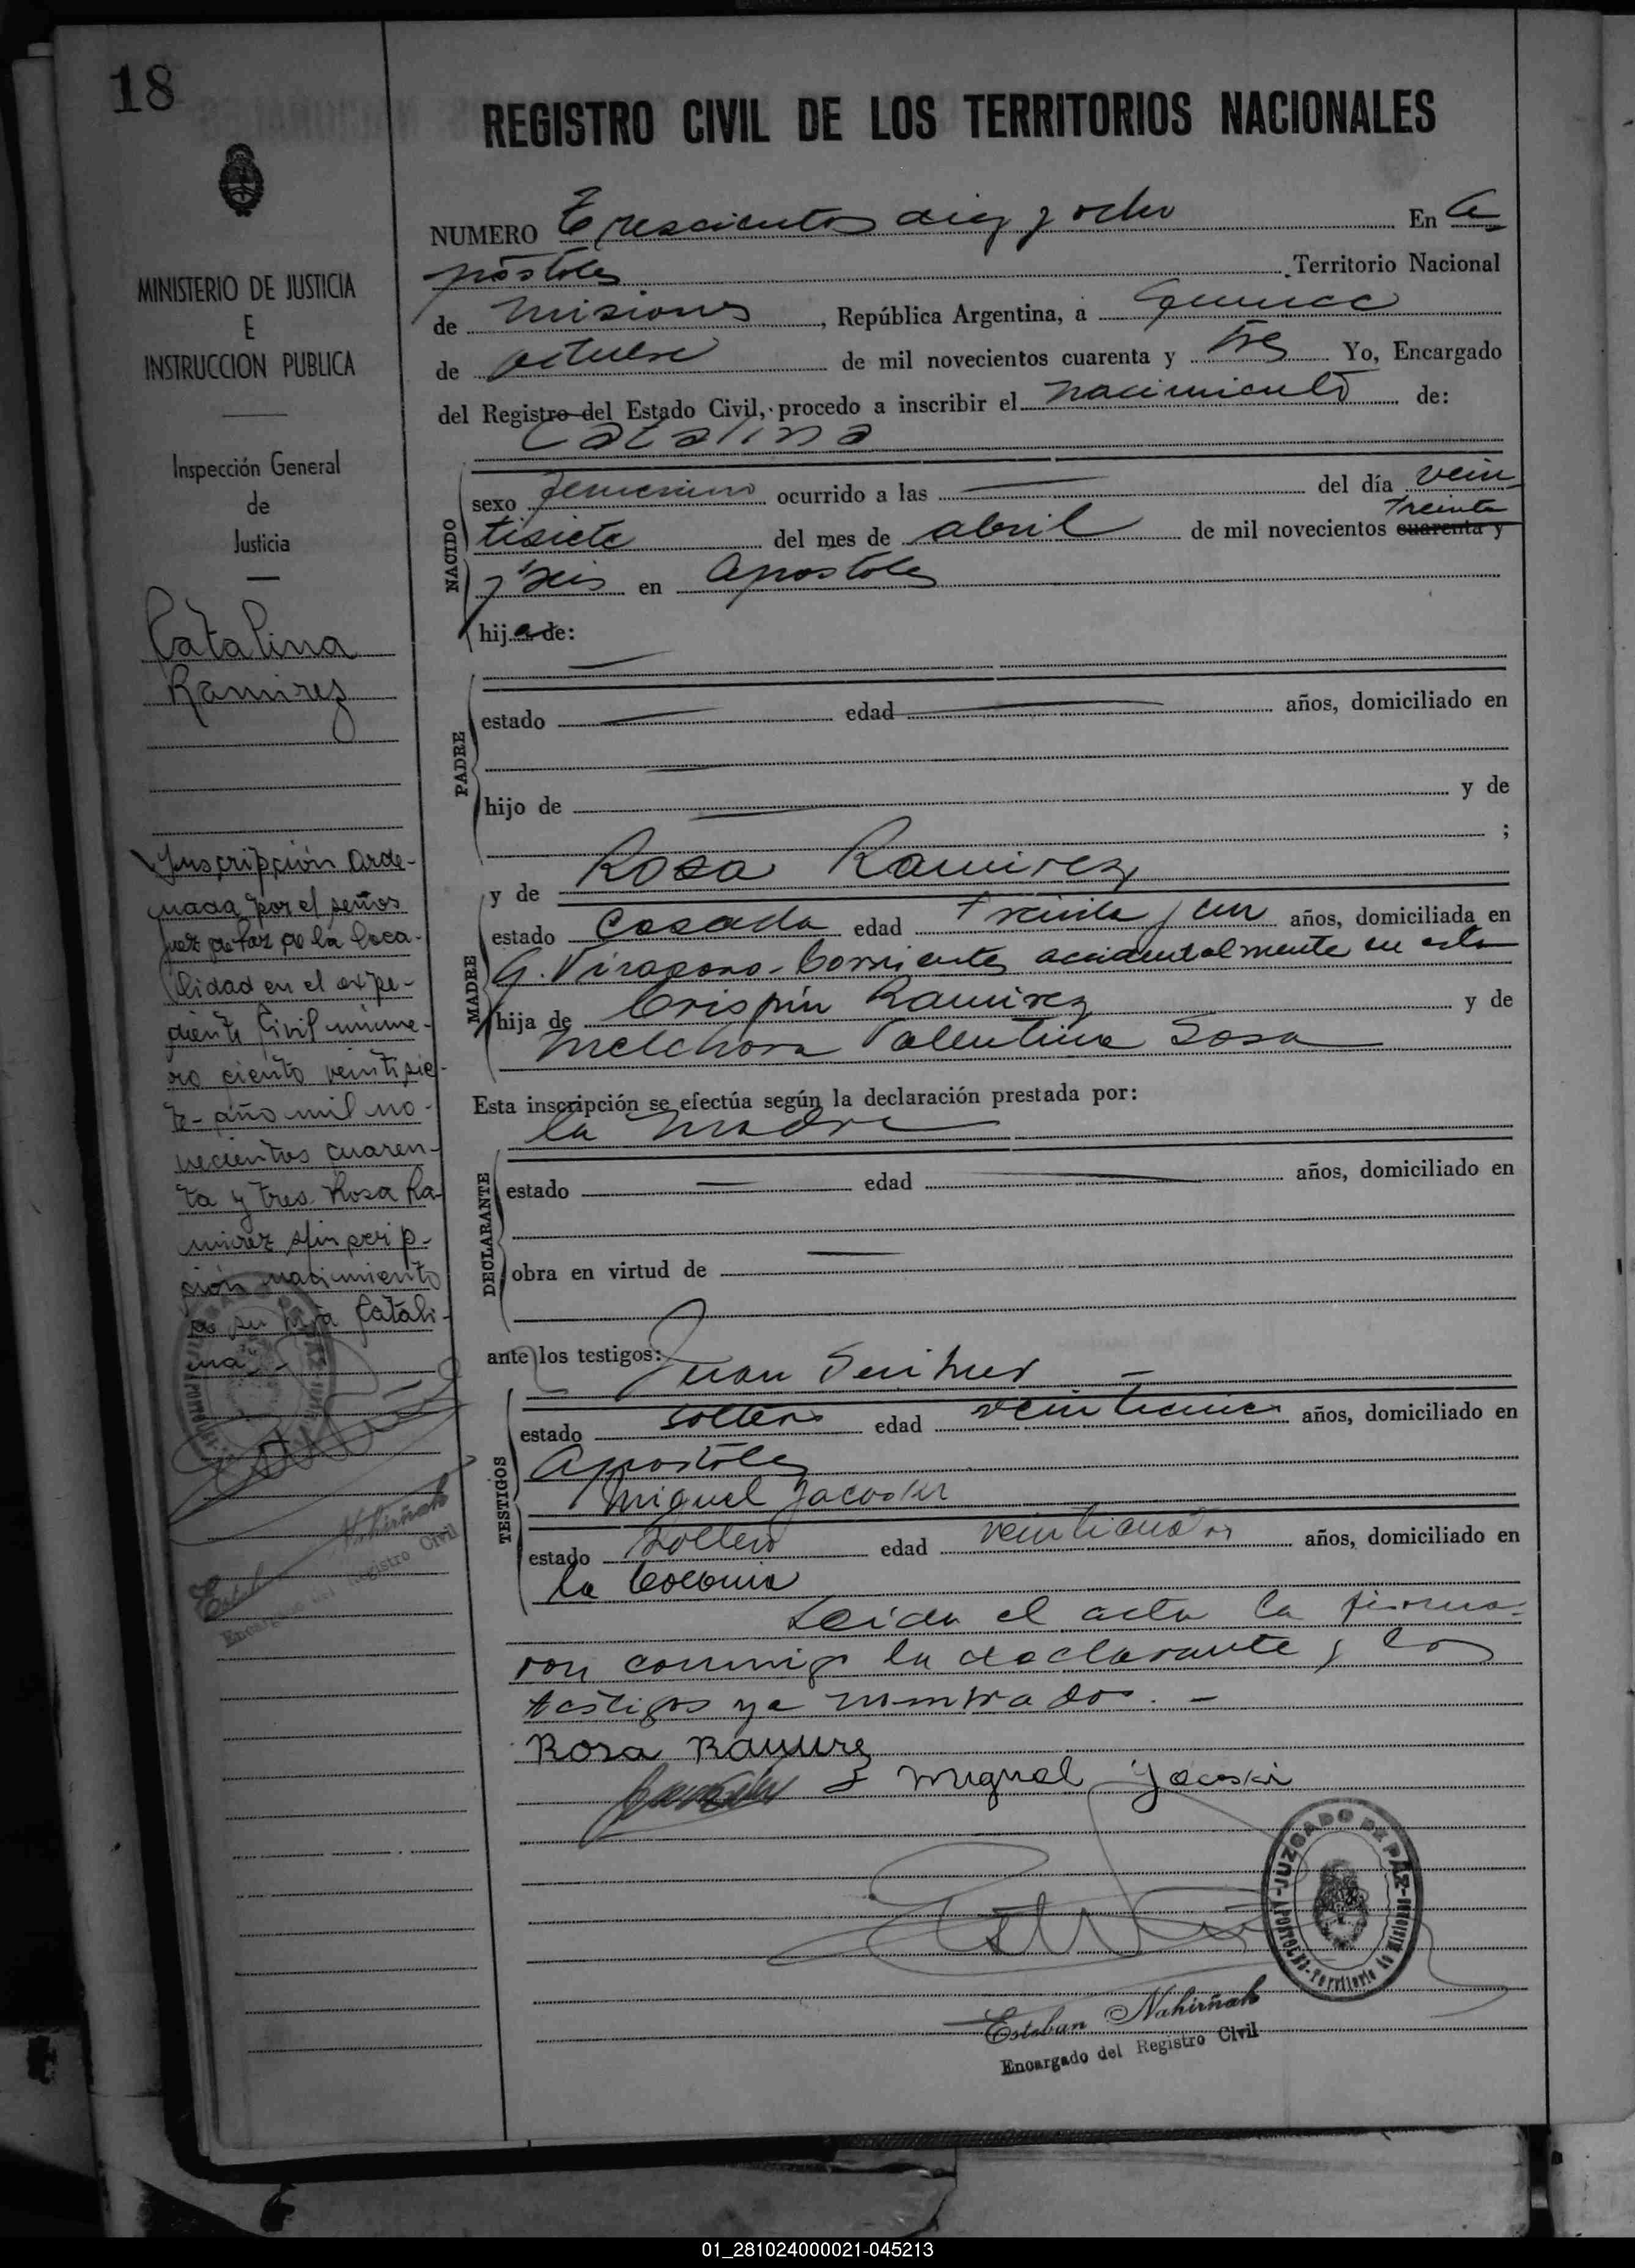 18
REGISTRO CIVIL DE LOS TERRITORIOS NACIONALES
MINISTERIO DE JUSTICIA
E
INSTRUCCION PUBLICA
Inspección General
de
Justicia
Catalina
Ramirez
Inscripción orde-
nada por el señor
Juez de Paz de la loca-
lidad en el expe-
diente Civil núme-
ro ciento veintisie-
te - año mil no-
vecientos cuaren-
ta y tres Rosa Ra-
mirez s/inscrip-
ción nacimiento
de su hija Catali-
na.-
Esteban Nahirñak
Encargado del Registro Civil
NUMERO Trescientos diez y ocho En A
póstoles Territorio Nacional
de Misiones, República Argentina, a quince
de octubre de mil novecientos cuarenta y tres Yo, Encargado
del Registro del Estado Civil, procedo a inscribir el nacimiento de:
Catalina
NACIDO
sexo femenino ocurrido a las del día vein
tisiete del mes de abril de mil novecientos cuarenta y treinta
y seis en Apostoles
hija de:
PADRE
estado edad años, domiciliado en
hijo de y de
;
y de Rosa Ramirez
MADRE
estado casada edad treinta y un años, domiciliada en
G. Virasoro - Corrientes accidentalmente en esta
hija de Crispin Ramirez y de
Melchora Valentina Sosa
Esta inscripción se efectúa según la declaración prestada por:
la madre
DECLARANTE
estado edad años, domiciliado en
obra en virtud de
ante los testigos: Juan
TESTIGOS
estado soltero edad años, domiciliado en
Apostoles
Miguel Jacoski
estado soltero edad años, domiciliado en
la Colonia
Leida el acta la firma-
ron conmigo la declarante y los
testigos ya nombrados. -
Rosa Ramirez
Miguel Jacoski
JUZGADO DE PAZ
APOSTOLES - Territorio de Misiones
Esteban Nahirñak
Encargado del Registro Civil
01_281024000021-045213